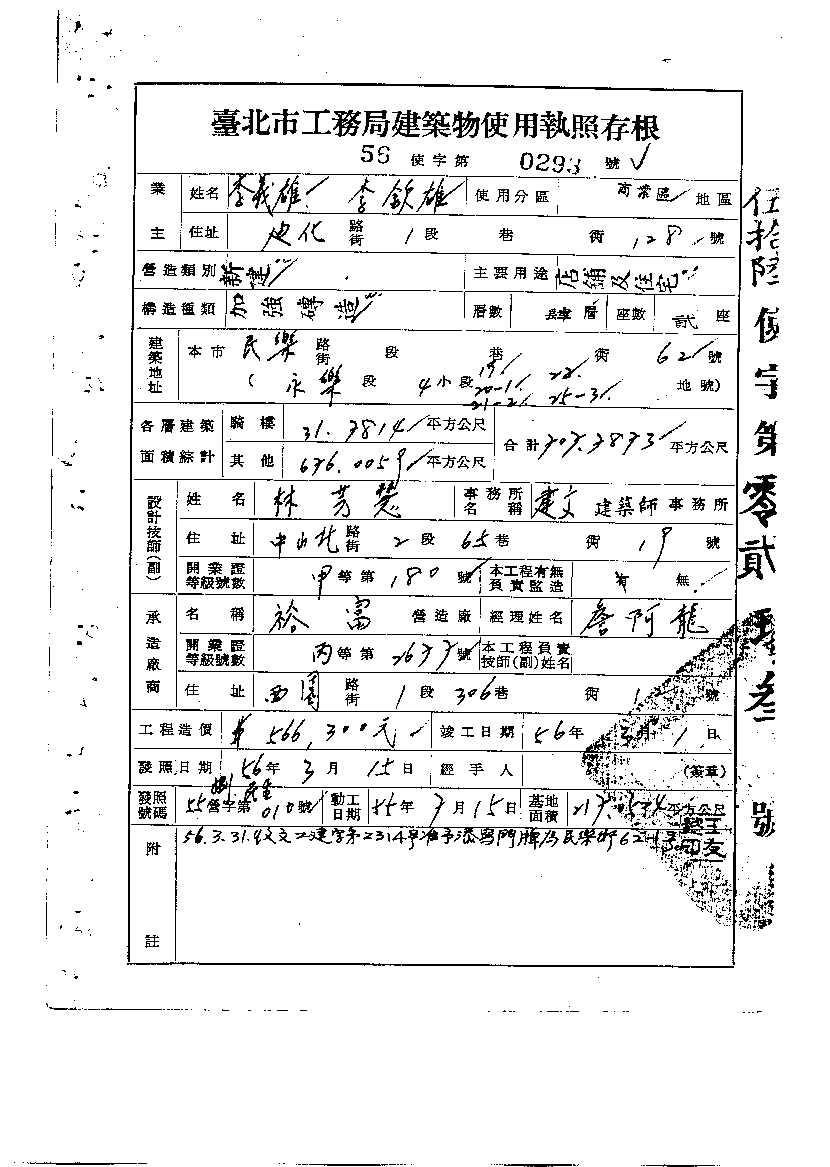 臺北市工務局建築物使用執照存根
56 使字第 0293 號
業主 姓名 李義雄 李欽雄 使用分區 商業區 地區
住址 迪化 路街 1 段 巷 街 128 號
營造類別 新建 主要用途 店舖及住宅
構造種類 加強磚造 層數 肆 層 座數 貳 座
建築地址 本市 民樂 路街 段 巷 街 62 號
( 永樂 段 4 小段 19 20-1 21-2 22 25-3 地號)
各層建築面積綜計 騎樓 31.7814 平方公尺 合計 707.7873 平方公尺
其他 676.0059 平方公尺
設計技師(副) 姓名 林芳慧 事務所名稱 建文 建築師事務所
住址 中山北 路街 2 段 65 巷 街 19 號
開業證等級號數 甲 等第 180 號 本工程有無負責監造 有 無
承造廠商 名稱 裕富 營造廠 經理姓名 詹阿龍
開業證等級號數 丙 等第 2677 號 本工程負責技師(副)姓名
住址 西園 路街 1 段 306 巷 街 號
工程造價 566,300元 竣工日期 56 年 3 月 1 日
發照日期 56 年 3 月 15 日 經手人 (簽章)
發照號碼 55 營字第 010 號 動工日期 55 年 7 月 15 日 基地面積 平方公尺
附註 56.3.31.收文工建字第2314號准予添寫門牌為民樂街62-1號
伍拾陸使字第零貳玖叁號